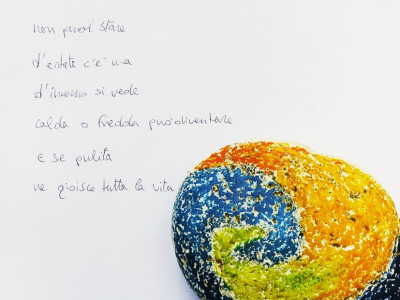 non puoi stare
d'estate c'è ma
d'inverno si vede
calda o fredda può diventare
e se pulita
ne gioisce tutta la vita